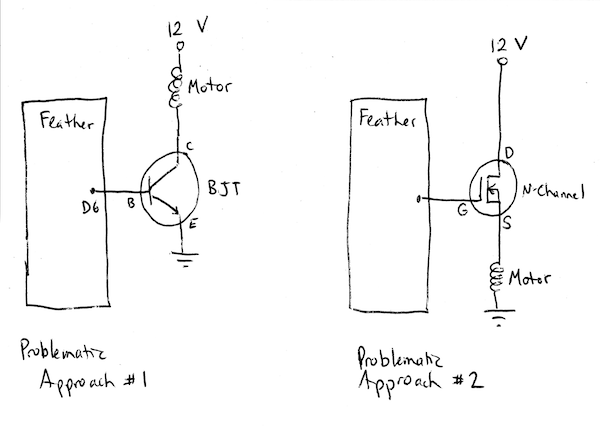 12 V
Motor
Feather
C
BJT
D6
B
E
Problematic
Approach #1
12 V
Feather
D
N-Channel
G
S
Motor
Problematic
Approach #2